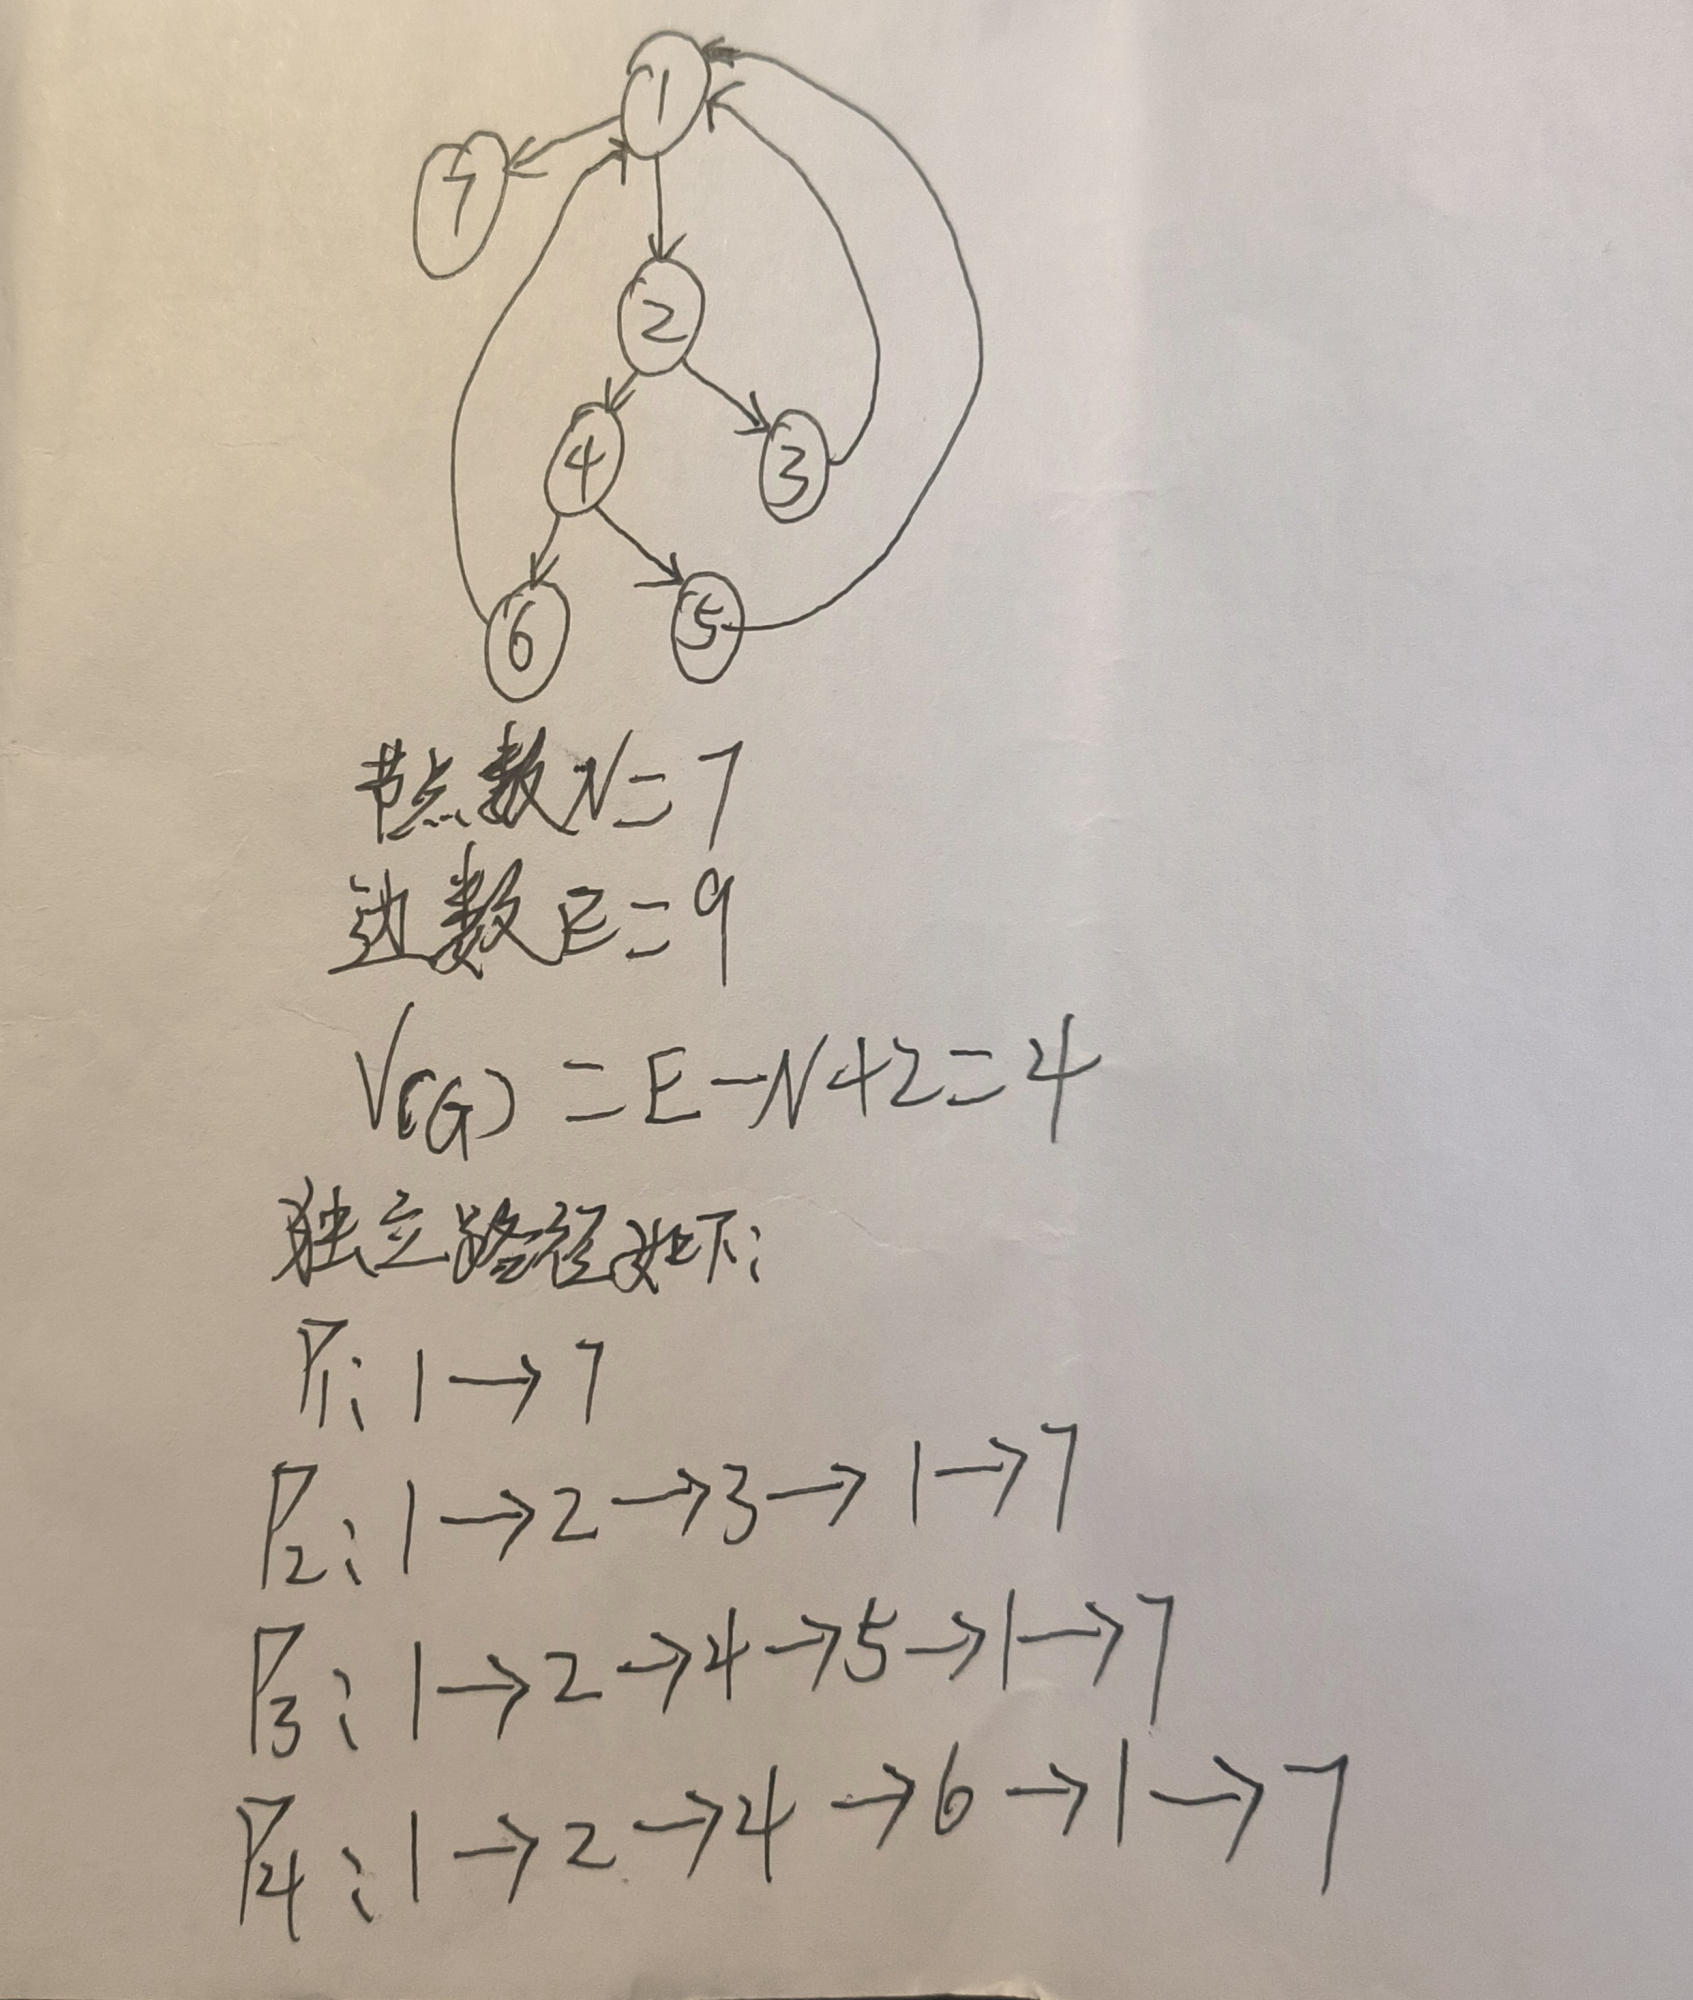 1
7
2
4
3
6
5
节点数N=7
边数E=9
V(G)=E-N+2=4
独立路径如下:
P1: 1→7
P2: 1→2→3→1→7
P3: 1→2→4→5→1→7
P4: 1→2→4→6→1→7